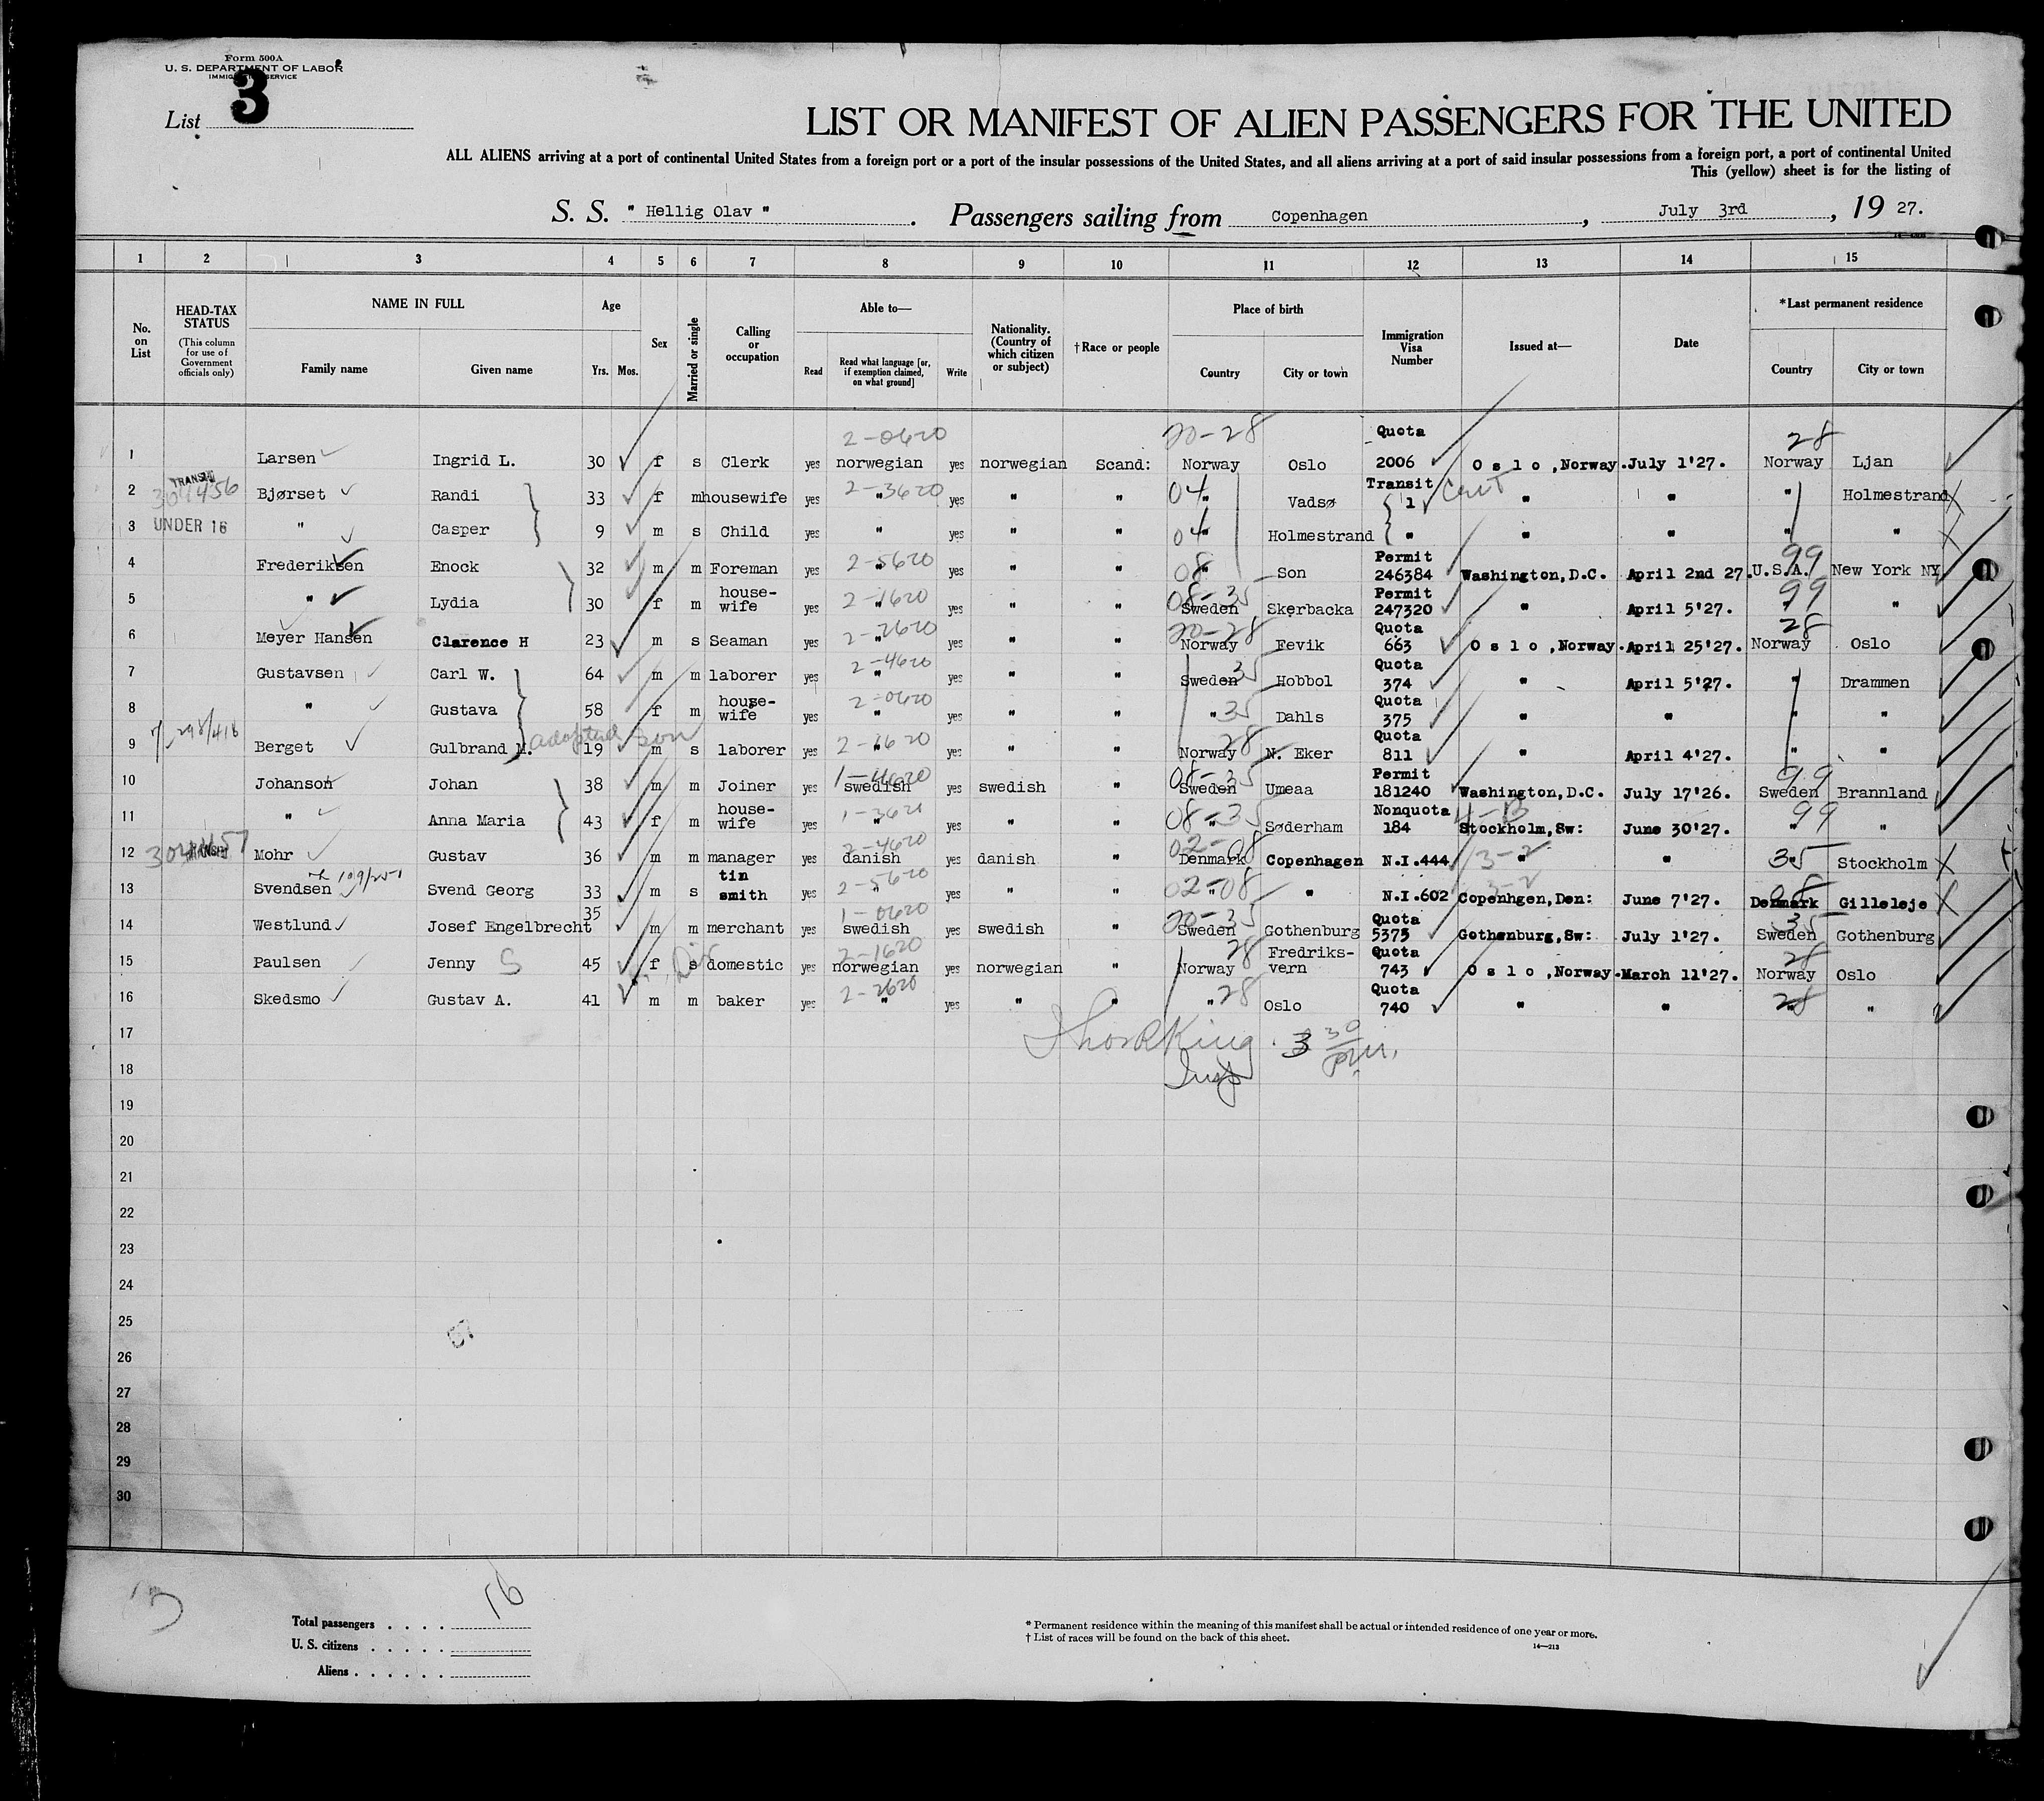 Form 500A
U. S. DEPARTMENT OF LABOR
IMMIGRATION SERVICE
List 3
LIST OR MANIFEST OF ALIEN PASSENGERS FOR THE UNITED
ALL ALIENS arriving at a port of continental United States from a foreign port or a port of the insular possessions of the United States, and all aliens arriving at a port of said insular possessions from a foreign port, a port of continental United
This (yellow) sheet is for the listing of
S. S. " Hellig Olav " . Passengers sailing from Copenhagen , July 3rd , 19 27.
1 2 3 4 5 6 7 8 9 10 11 12 13 14 15
No. on List
HEAD-TAX STATUS (This column for use of Government officials only)
NAME IN FULL Family name Given name
Age Yrs. Mos.
Sex
Married or single
Calling or occupation
Able to— Read Read what language [or, if exemption claimed, on what ground] Write
Nationality. (Country of which citizen or subject)
†Race or people
Place of birth Country City or town
Immigration Visa Number
Issued at—
Date
*Last permanent residence Country City or town
2-0620 20-28 Quota 28
1 Larsen Ingrid L. 30 f s Clerk yes norwegian yes norwegian Scand: Norway Oslo 2006 O s l o ,Norway. July 1'27. Norway Ljan
TRANSIT 304456 2-3620 04 Transit
2 Bjørset Randi 33 f m housewife yes " yes " " " Vadsø 1 " " " Holmestrand
3 UNDER 16 " Casper 9 m s Child yes " yes " " 04 " Holmestrand " " " " "
2-5620 08 Permit 99
4 Frederiksen Enock 32 m m Foreman yes " yes " " " Son 246384 Washington,D.C. April 2nd 27. U.S.A. New York NY
2-1620 08-35 Permit 99
5 " Lydia 30 f m house-wife yes " yes " " Sweden Skerbacka 247320 " April 5'27. " "
2-2620 20-28 Quota 28
6 Meyer Hansen Clarence H 23 m s Seaman yes " yes " " Norway Fevik 663 O s l o ,Norway. April 25'27. Norway Oslo
2-4620 35 Quota
7 Gustavsen Carl W. 64 m m laborer yes " yes " " Sweden Hobbol 374 " April 5'27. " Drammen
2-0620 35 Quota
8 " Gustava 58 f m house-wife yes " yes " " " Dahls 375 " " " "
298/418 adopted son 2-1620 28 Quota
9 Berget Gulbrand M. 19 m s laborer yes " yes " " Norway N. Eker 811 " April 4'27. " "
1-4620 08-35 Permit 99
10 Johanson Johan 38 m m Joiner yes swedish yes swedish " Sweden Umeaa 181240 Washington,D.C. July 17'26. Sweden Brannland
1-3621 08-35 Nonquota 4-B 99
11 " Anna Maria 43 f m house-wife yes " yes " " " Søderham 184 Stockholm,Sw: June 30'27. " "
304457 TRANSIT 2-4620 02-08 3-2 35
12 Mohr Gustav 36 m m manager yes danish yes danish " Denmark Copenhagen N.I.444 " " " Stockholm
109/251 2-5620 02-08 3-2 08
13 Svendsen Svend Georg 33 m s tin smith yes " yes " " " " N.I.602 Copenhgen,Den: June 7'27. Denmark Gilleleje
1-0620 20-35 Quota 35
14 Westlund Josef Engelbrecht 35 m m merchant yes swedish yes swedish " Sweden Gothenburg 5375 Gothenburg,Sw: July 1'27. Sweden Gothenburg
S Div 2-1620 28 Quota 28
15 Paulsen Jenny 45 f s domestic yes norwegian yes norwegian " Norway Fredriks-vern 743 O s l o ,Norway. March 11'27. Norway Oslo
2-2620 28 Quota 28
16 Skedsmo Gustav A. 41 m m baker yes " yes " " " Oslo 740 " " " "
17 King 3 30
18 Insp pm.
19
20
21
22
23
24
25
26
27
28
29
30
Total passengers . . . . 16
U. S. citizens . . . . .
Aliens . . . . . .
* Permanent residence within the meaning of this manifest shall be actual or intended residence of one year or more.
† List of races will be found on the back of this sheet.
14—213